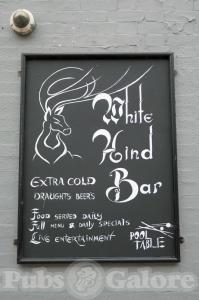 White
Hind
Bar
EXTRA COLD
DRAUGHTS BEERS
FOOD SERVED DAILY
Full MENU & DAILY SPECIALS
LIVE ENTERTAINMENT
POOL
TABLE
Pubs Galore